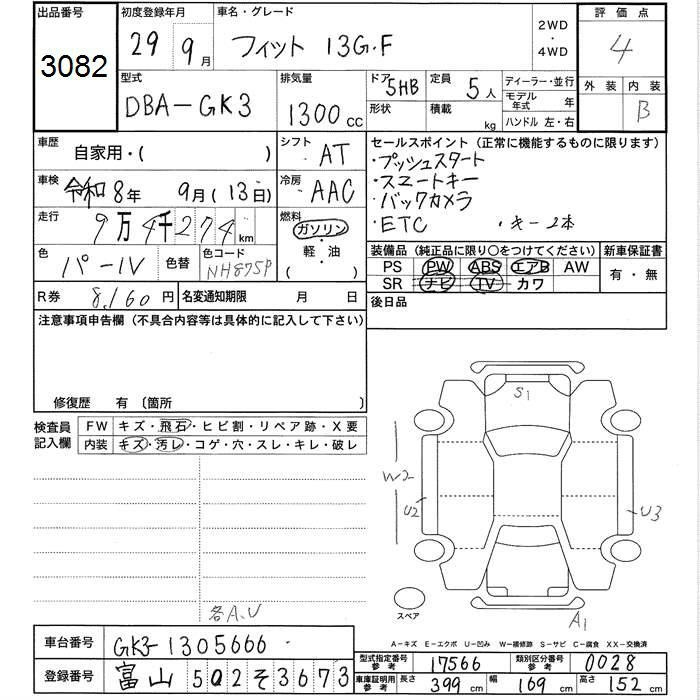 出品番号 初度登録年月 車名・グレード 2WD・4WD 評価点
3082 29年 9月 フィット 13G・F 4
型式 排気量 ドア 5HB 定員 5人 ディーラー・並行 外装 内装
DBA-GK3 1300cc 形状 積載 kg モデル年式 年 B
ハンドル 左・右
車歴 自家用・( ) シフト AT セールスポイント(正常に機能するものに限ります)
・プッシュスタート
車検 令和8年 9月(13日) 冷房 AAC ・スマートキー
・バックカメラ
走行 9万4千274km 燃料 ガソリン・軽・油 ( ) ・ETC ・キー2本
色 パーIV 色替 色コード NH875P 装備品(純正品に限り○をつけてください) 新車保証書
PS PW ABS エアB AW 有・無
R券 8,160円 名変通知期限 月 日 SR ナビ TV カワ
後日品
注意事項申告欄(不具合内容等は具体的に記入して下さい)
修復歴 有 〔箇所 〕
検査員記入欄 FW キズ・飛石・ヒビ割・リペア跡・X要
内装 キズ・汚レ・コゲ・穴・スレ・キレ・破レ
S1
W2
U2
U3
スペア
A1
各A,U
A-キズ E-エクボ U-凹み W-補修跡 S-サビ C-腐食 XX-交換済
車台番号 GK3-1305666 型式指定番号参考 17566 類別区分番号参考 0028
登録番号 富山 502 そ 3673 車庫証明用参考 長さ 399cm 幅 169cm 高さ 152cm